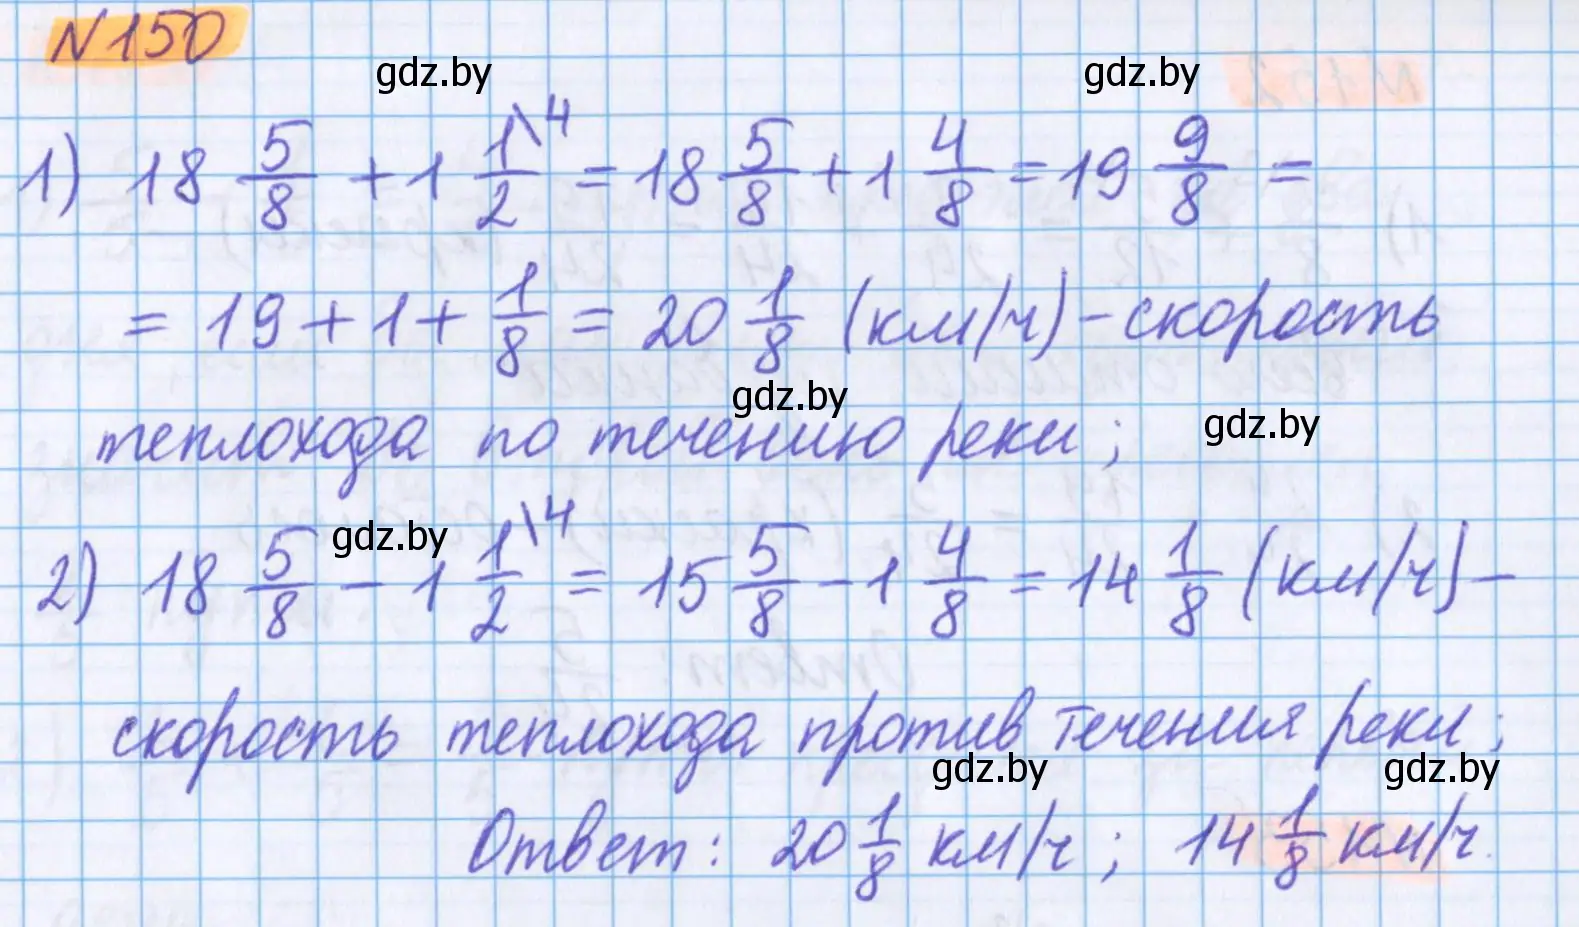 N150
gdz.by gdz.by
1) 18 5/8 + 1 1/2 \4 = 18 5/8 + 1 4/8 = 19 9/8 =
= 19 + 1 + 1/8 = 20 1/8 (км/ч) - скорость
gdz.by gdz.by
теплохода по течению реки;
gdz.by
2) 18 5/8 - 1 1/2 \4 = 15 5/8 - 1 4/8 = 14 1/8 (км/ч) -
скорость теплохода против течения реки;
gdz.by gdz.by
Ответ: 20 1/8 км/ч; 14 1/8 км/ч.